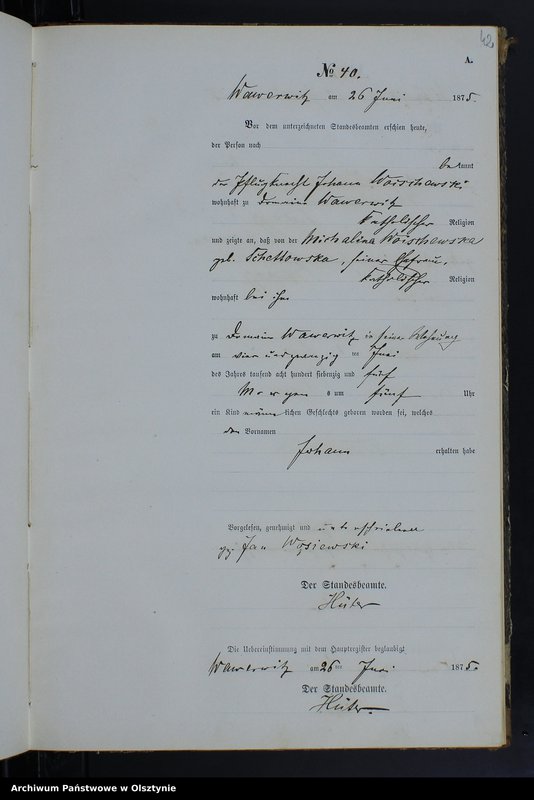 42
A.
№ 40.
Wawerwitz am 26 Juni 1875.
Vor dem unterzeichneten Standesbeamten erschien heute,
der Person nach
bekannt
der Pflugknecht Johann Woischewski
wohnhaft zu Domaine Wawerwitz
katholischer Religion
und zeigte an, daß von der Michalina Woischewska
geb. Schettowska, seiner Ehefrau,
katholischer Religion
wohnhaft bei ihm
zu Domaine Wawerwitz in seiner Behausung
am vier und zwanzig ten Juni
des Jahres tausend acht hundert siebenzig und fünf
Morgens um fünf Uhr
ein Kind männlichen Geschlechts geboren worden sei, welches
den Vornamen
Johann erhalten habe
Vorgelesen, genehmigt und unterschrieben
gz. Jan Wosiewski
Der Standesbeamte.
Hüter
Die Uebereinstimmung mit dem Hauptregister beglaubigt
Wawerwitz am 26 ten Juni 1875.
Der Standesbeamte.
Hüter.
Archiwum Państwowe w Olsztynie